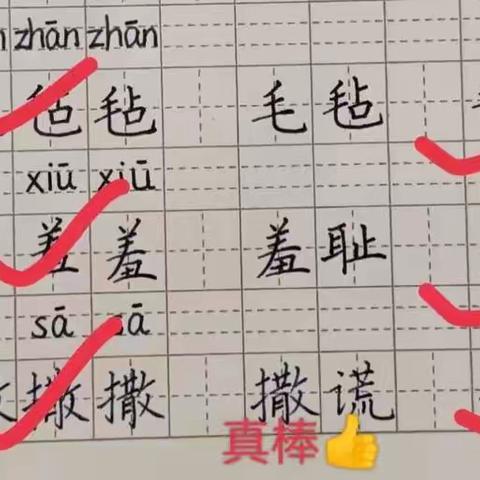 zhān zhān
毡 毡 毛 毡
xiū xiū
羞 羞 羞 耻
sā sā
撒 撒 撒 谎
真棒👍